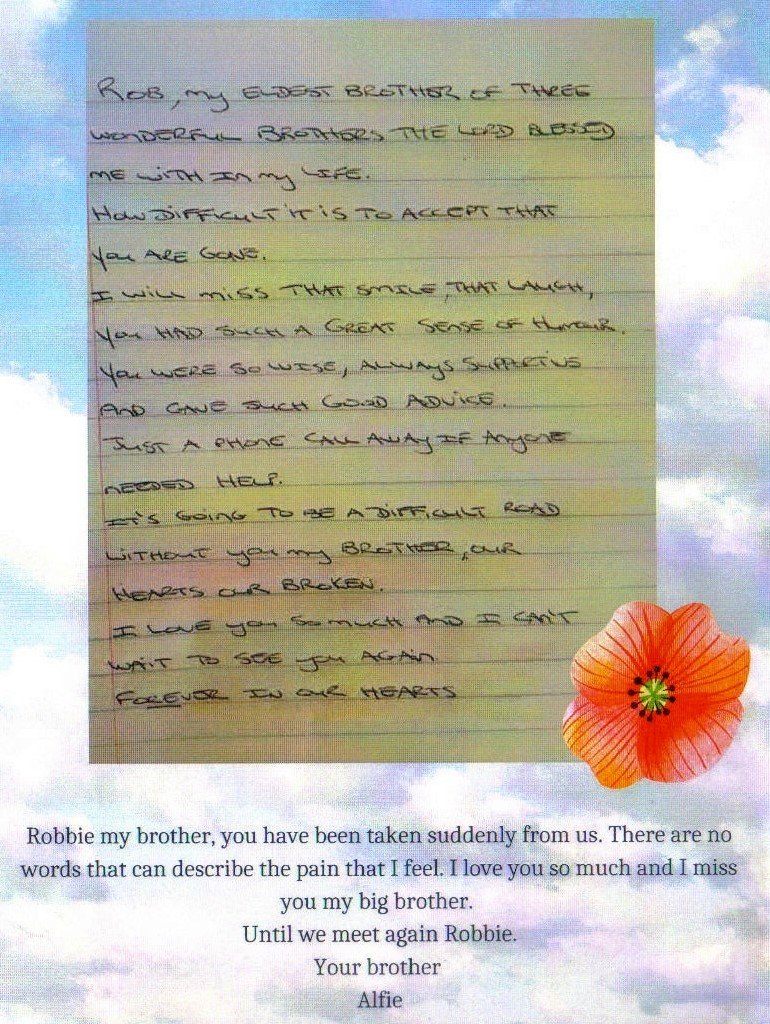 ROB, my ELDEST BROTHER OF THREE
WONDERFUL BROTHERS THE LORD BLESSED
ME WITH IN my LIFE.
HOW DIFFICULT IT IS TO ACCEPT THAT
you ARE GONE.
I WILL MISS THAT SMILE, THAT LAUGH,
you HAD SUCH A GREAT SENSE OF HUMOUR.
you WERE SO WISE, ALWAYS SUPPORTIVE
AND GAVE SUCH GOOD ADVICE.
JUST A PHONE CALL AWAY IF ANYONE
NEEDED HELP.
IT'S GOING TO BE A DIFFICULT ROAD
WITHOUT you my BROTHER, OUR
HEARTS OUR BROKEN.
I LOVE you SO MUCH AND I CAN'T
WAIT TO SEE you AGAIN
FOREVER IN OUR HEARTS
Robbie my brother, you have been taken suddenly from us. There are no
words that can describe the pain that I feel. I love you so much and I miss
you my big brother.
Until we meet again Robbie.
Your brother
Alfie